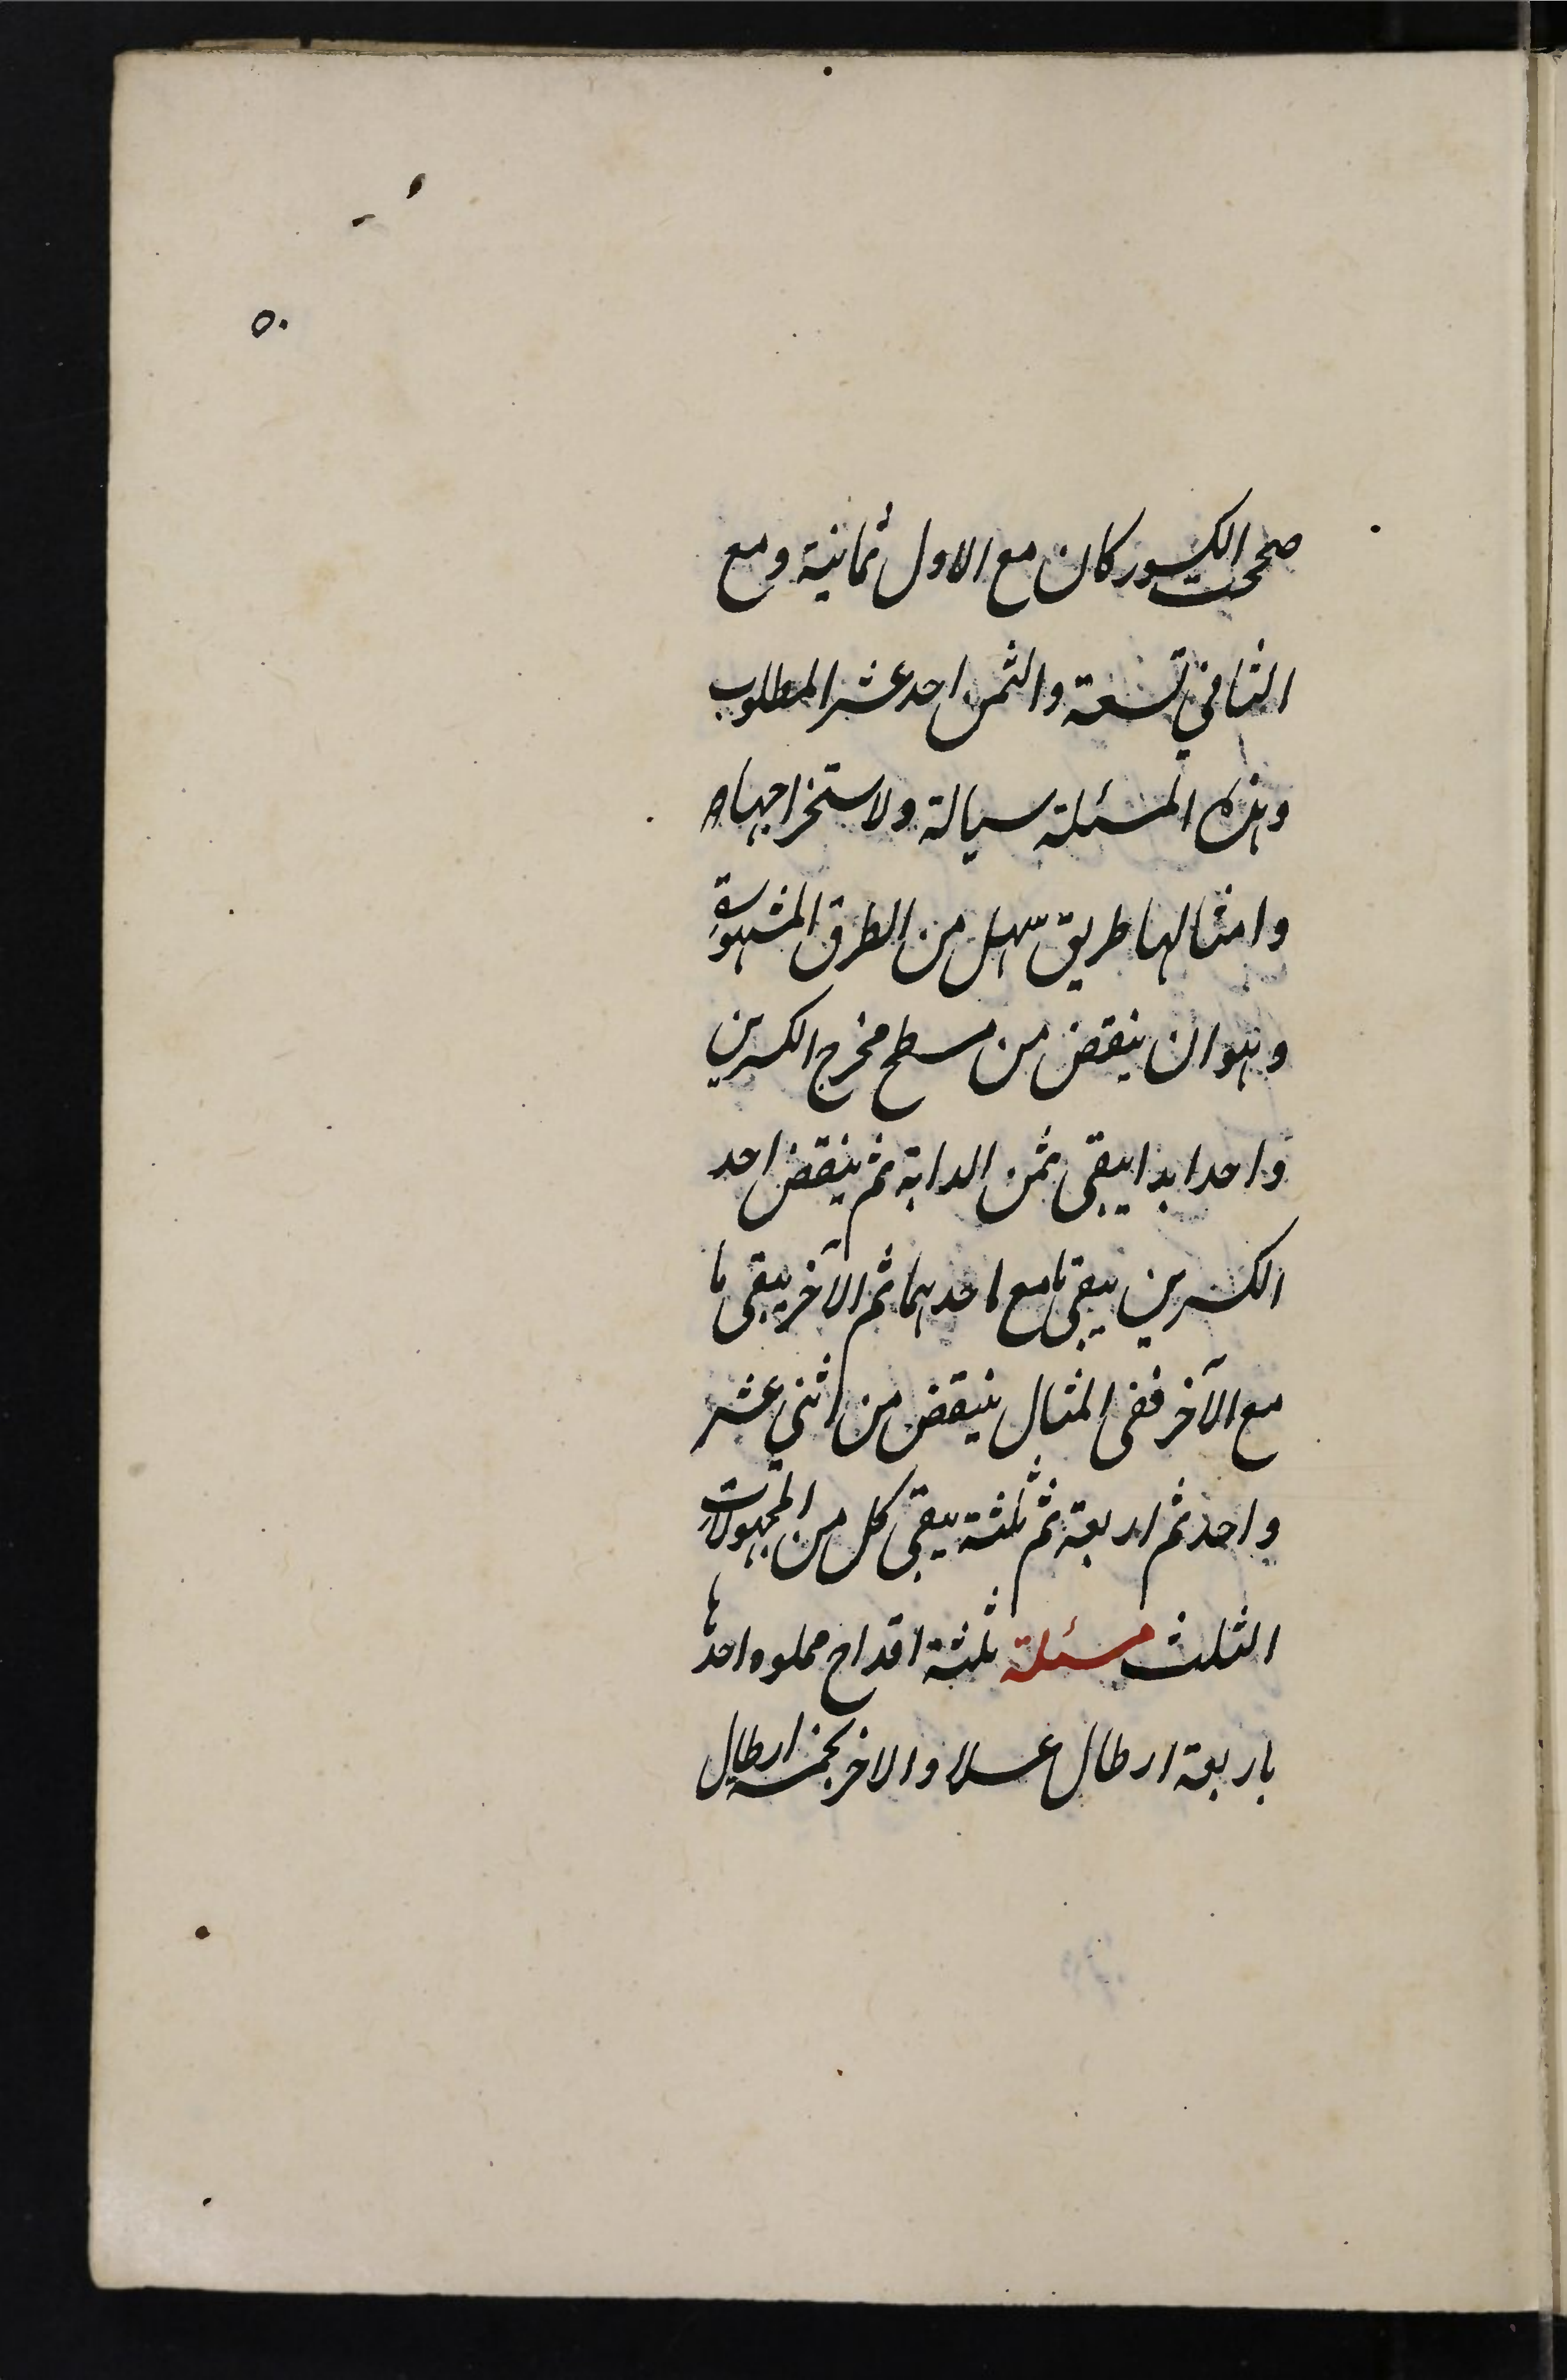 ٥٠
صححت الكسور كان مع الاول ثمانية ومع
الثاني تسعة والثمن احد عشر المطلوب
وهذه المسئلة سيالة ولاستخراجها
وامثالها طريق سهل من الطرق المشهورة
وهو ان ينقض من مسطح مخرج الكسرين
واحد ابدا يبقى ثمن الدابة ثم ينقض احد
الكسرين يبقى ما مع احدهما ثم الآخر يبقى ما
مع الآخر ففى المثال ينقض من اثنى عشر
واحد ثم اربعة ثم ثلثة يبقى كل من المجهولات
الثلث مسئلة ثلثة اقداح مملوه احدها
باربعة ارطال عسلا والاخر بخمسة ارطال